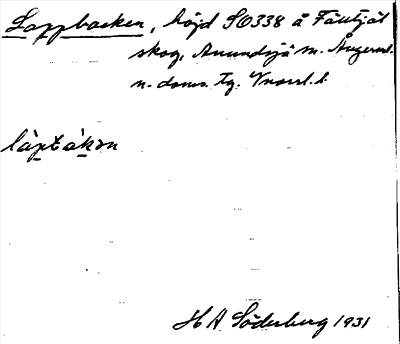 Lappbacken, höjd SO338 å Fäutjäl
skog, Anundsjö sn. Ångerml.
n. doms. tg. Vnorrl. l.
làptákən
H A Söderberg 1931